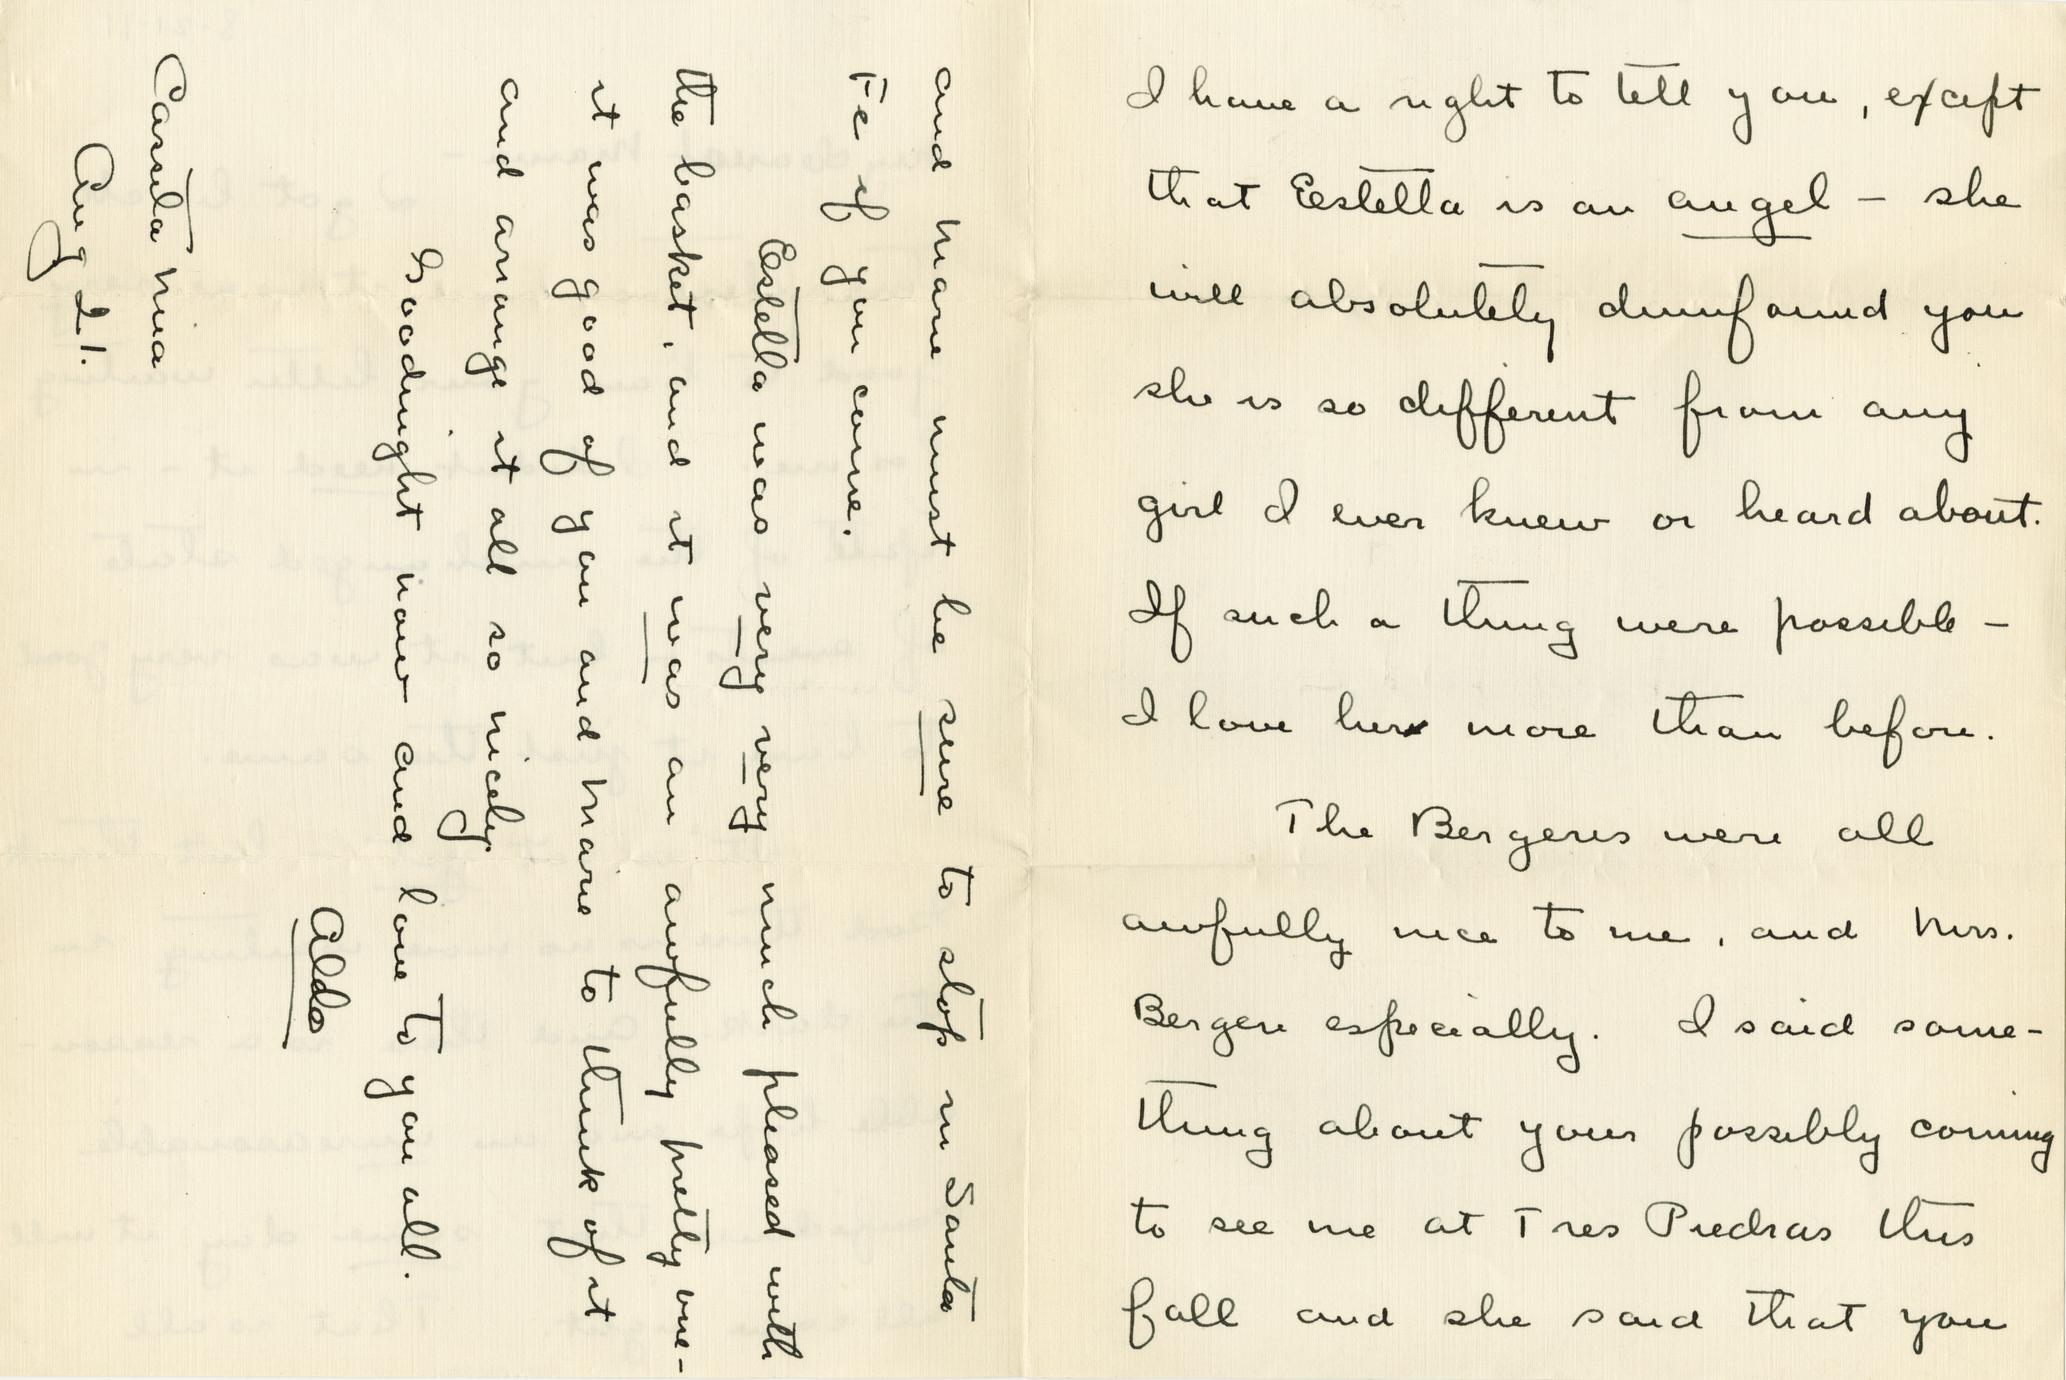 I have a right to tell you, except
that Estella is an angel – she
will absolutely dumfound you
she is so different from any
girl I ever knew or heard about.
If such a thing were possible –
I love her more than before.
The Bergeres were all
awfully nice to me, and Mrs.
Bergere especially. I said some-
thing about your possibly coming
to see me at Tres Piedras this
fall and she said that you
and Marie must be sure to stop in Santa
Fe if you come.
Estella was very very much pleased with
the basket, and it was an awfully pretty one –
it was good of you and Marie to think of it
and arrange it all so nicely
Goodnight now and love to you all.
Aldo
Casita mia
Aug 21.